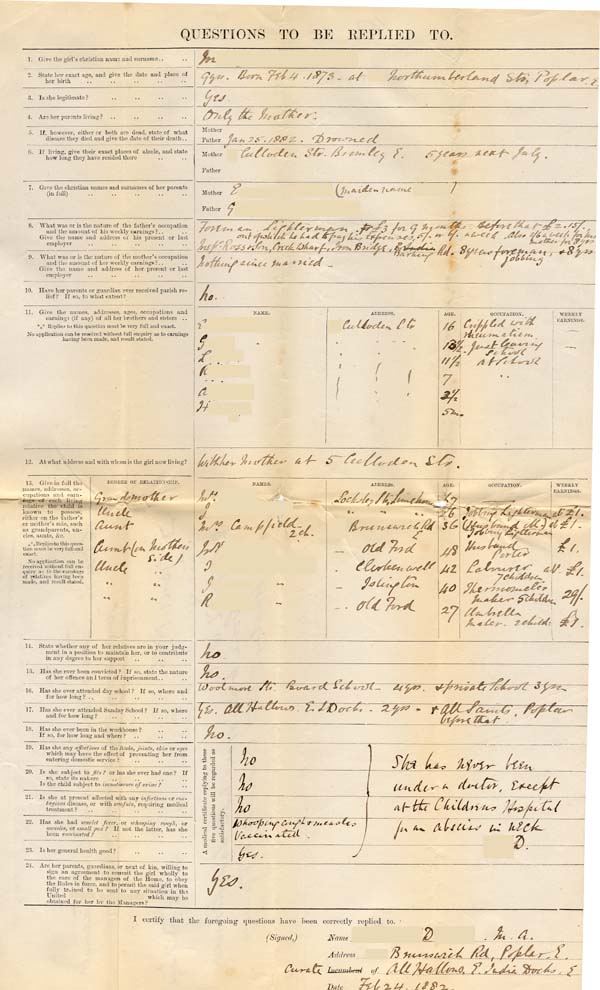 QUESTIONS TO BE REPLIED TO.
1. Give the girl's christian name and surname
M
2. State her exact age, and give the date and place of her birth
9 yrs. Born Feb 4. 1873 - at Northumberland Str, Poplar E.
3. Is she legitimate?
Yes
4. Are her parents living?
Only the Mother.
5. If, however, either or both are dead, state of what disease they died and give the date of their death
Mother
Father Jan 25. 1882. Drowned
6. If living, give their exact places of abode, and state how long they have resided there
Mother Culloden Str. Bromley E. 5 years next July.
Father
7. Give the christian names and surnames of her parents (in full)
Mother E (maiden name )
Father G
8. What was or is the nature of the father's occupation and the amount of his weekly earnings?
Give the name and address of his present or last employer
Foreman Lighterman, £3 for 9 months before that £2.
Iron Bridge, Barking Rd. 8 years foreman, & 8 yrs jobbing
9. What was or is the nature of the mother's occupation and the amount of her weekly earnings?
Give the name and address of her present or last employer
Nothing since married -
10. Have her parents or guardian ever received parish relief? If so, to what extent?
No.
11. Give the names, addresses, ages, occupations and earnings (if any) of all her brothers and sisters
*** Replies to this question must be very full and exact.
No application can be received without full enquiry as to earnings having been made, and result stated.
NAME. ADDRESS. AGE. OCCUPATION. WEEKLY EARNINGS.
E Culloden Str 16 Crippled with rheumatism —
G 13½ Just leaving School —
L 11½ at School
R 7 "
A 2½
H 5m.
12. At what address and with whom is the girl now living?
With her Mother at 5 Culloden Str.
13. Give in full the names, addresses, occupations and earnings of each living relative the child is known to possess, either on the father's or mother's side, such as grandparents, uncles, aunts, &c.
*** Replies to this question must be very full and exact.
No application can be received without full enquiry as to the earnings of relatives having been made, and result stated.
DEGREE OF RELATIONSHIP. NAMES. ADDRESS. AGE. OCCUPATION. WEEKLY EARNINGS.
Grandmother Mrs. 67
Uncle J " " " 26 Jobbing Lighterman at £1.
Aunt Mrs Campfield 2ch. Brunswick Rd E. 36 (Husband M) at £1. Jobbing Lighterman
Aunt (on Mothers Side) " Old Ford 48 Husband Porter £1.
Uncle J " Clerkenwell 42 Labourer at £1. 7 children
" " J " " Islington 40 Thermometer maker 5 children 29/-
" " R " " Old Ford 27 Umbrella maker. 2 child £1.
14. State whether any of her relatives are in your judgment in a position to maintain her, or to contribute in any degree to her support
No
15. Has she ever been convicted? If so, state the nature of her offence and term of imprisonment
No.
16. Has she ever attended day school? If so, where and for how long?
Woolmore Str. Board School - 4 yrs. & private School 3 yrs -
17. Has she ever attended Sunday School? If so, where and for how long?
Yes. All Hallows. E. I Docks - 2 yrs - & All Saints, Poplar before that.
18. Has she ever been in the workhouse? If so, for how long and where?
No.
A medical certificate replying to these five questions will be regarded as satisfactory.
19. Has she any affections of the limbs, joints, skin or eyes which may have the effect of preventing her from entering domestic service?
No
20. Is she subject to fits? or has she ever had one? If so, state its nature
Is the child subject to incontinence of urine?
No
21. Is she at present affected with any infectious or contagious disease, or with scrofula, requiring medical treatment?
No
22. Has she had scarlet fever, or whooping cough, or measles, or small pox? If not the latter, has she been vaccinated?
Whooping cough & measles
Vaccinated.
23. Is her general health good?
Yes.
She has never been
under a doctor, Except
at the Childrens Hospital
for an abscess in neck
D.
24. Are her parents, guardians, or next of kin, willing to sign an agreement to commit the girl wholly to the care of the managers of the Home, to obey the Rules in force, and to permit the said girl when fully trained to be sent to any situation in the United which may be obtained for her by the Managers?
Yes.
I certify that the foregoing questions have been correctly replied to.
(Signed,) Name D M.A.
Address Brunswick Rd, Poplar, E.
Curate Incumbent of All Hallows, E. India Docks, E
Date Feb 24. 1882.